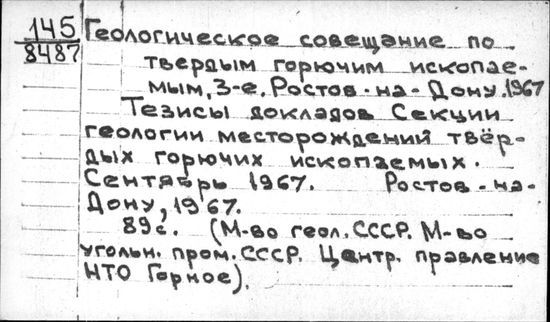 145
8487
Геологическое совещание по
твердым горючим ископае-
мым, 3-е, Ростов-на-Дону, 1967
Тезисы докладов Секции
геологии месторождений твёр-
дых горючих ископаемых.
Сентябрь 1967. Ростов-на-
Дону, 1967.
89с. (М-во геол. СССР. М-во
угольн. пром. СССР. Центр. правление
НТО Горное).